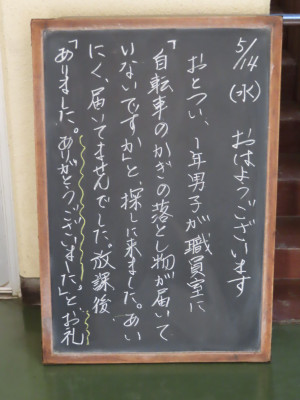 5/14(水) おはようございます
おとつい、1年男子が職員室に
「自転車のかぎの落とし物が届いて
いないですか」と探しに来ました。あい
にく、届いてませんでした。放課後、
「ありました。ありがとうございました。」と、お礼